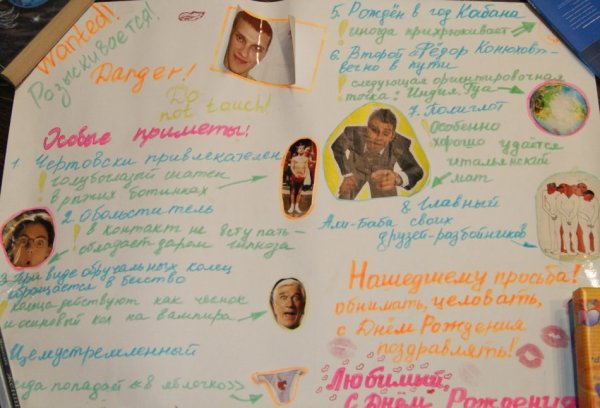 Wanted!
Разыскивается!
Danger!
Do
not touch!
Особые приметы!
1. Чертовски привлекателен
! голубоглазый шатен
в рыжих ботинках
2. Обольститель
! в контакт не вступать -
обладает даром гипноза
3. При виде обручальных колец
обращается в бегство
кольца действуют как чеснок
и осиновый кол на вампира
Целеустремленный
всегда попадает «в яблочко»
5. Рождён в год Кабана
! иногда прихрюкивает
6. Второй «Фёдор Конюхов» -
вечно в пути
! следующая ориентировочная
точка: Индия, Гоа
7. Полиглот
! Особенно
хорошо удаётся
итальянский
мат
8. Главный
Али-Баба своих
друзей-разбойников
Нашедшему просьба!
обнимать, целовать,
с Днём Рождения
поздравлять!
Любимый,
с Днём Рождения